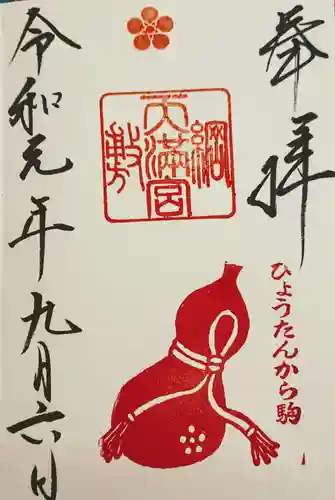 奉拝
綱敷
天満宮
ひょうたんから駒
令和元年九月六日